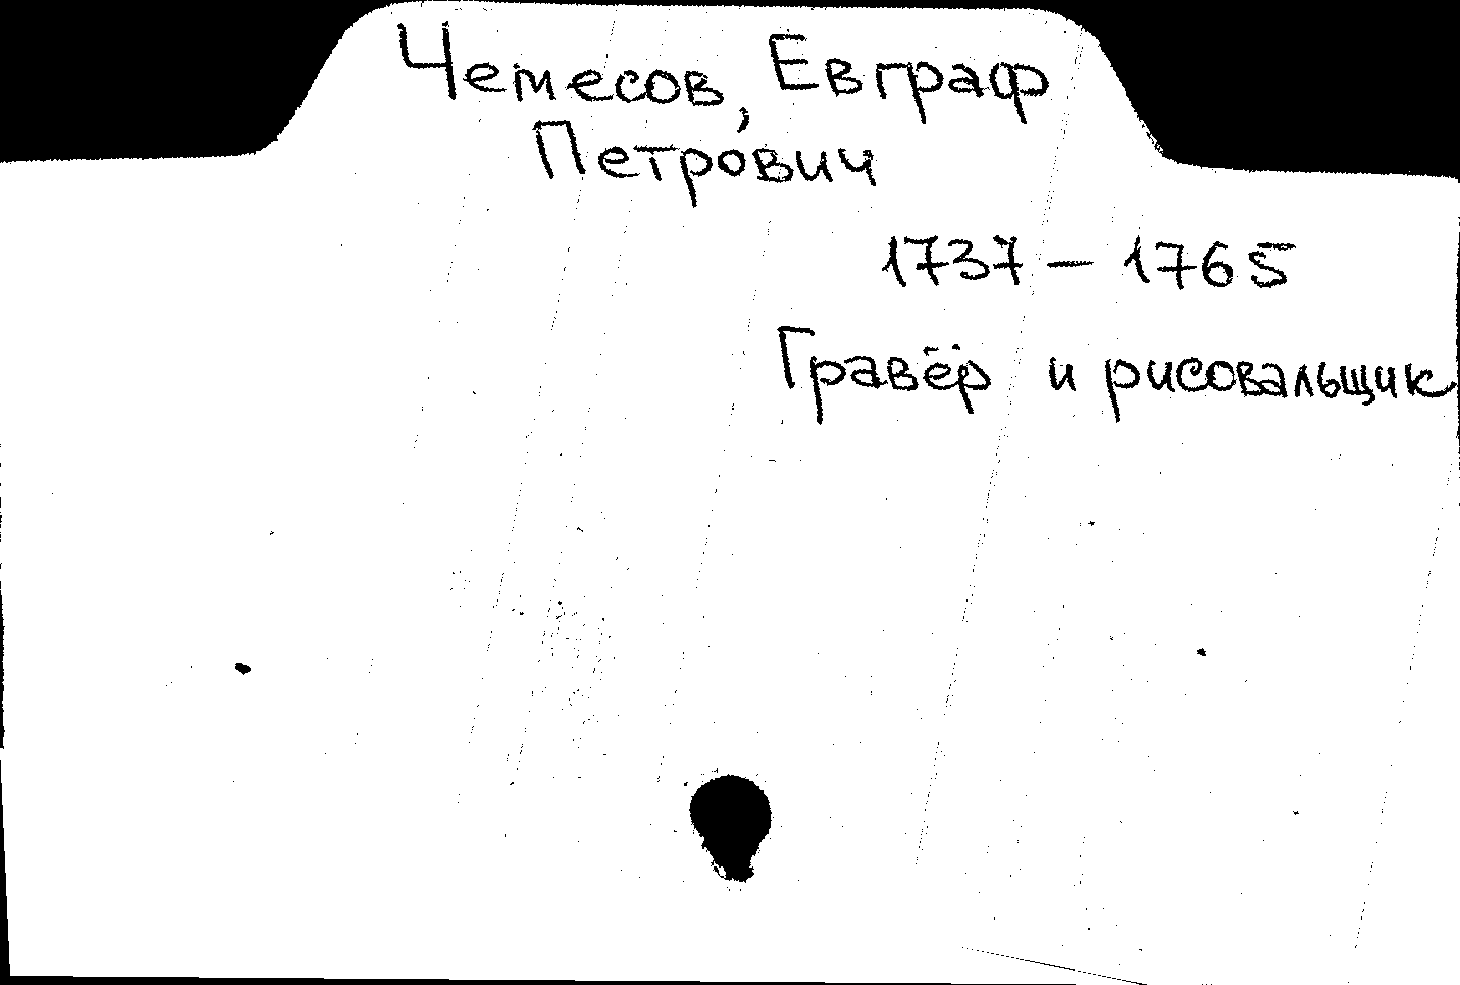 Чемесов, Евграф
Петрович
1737 – 1765
Гравёр и рисовальщик